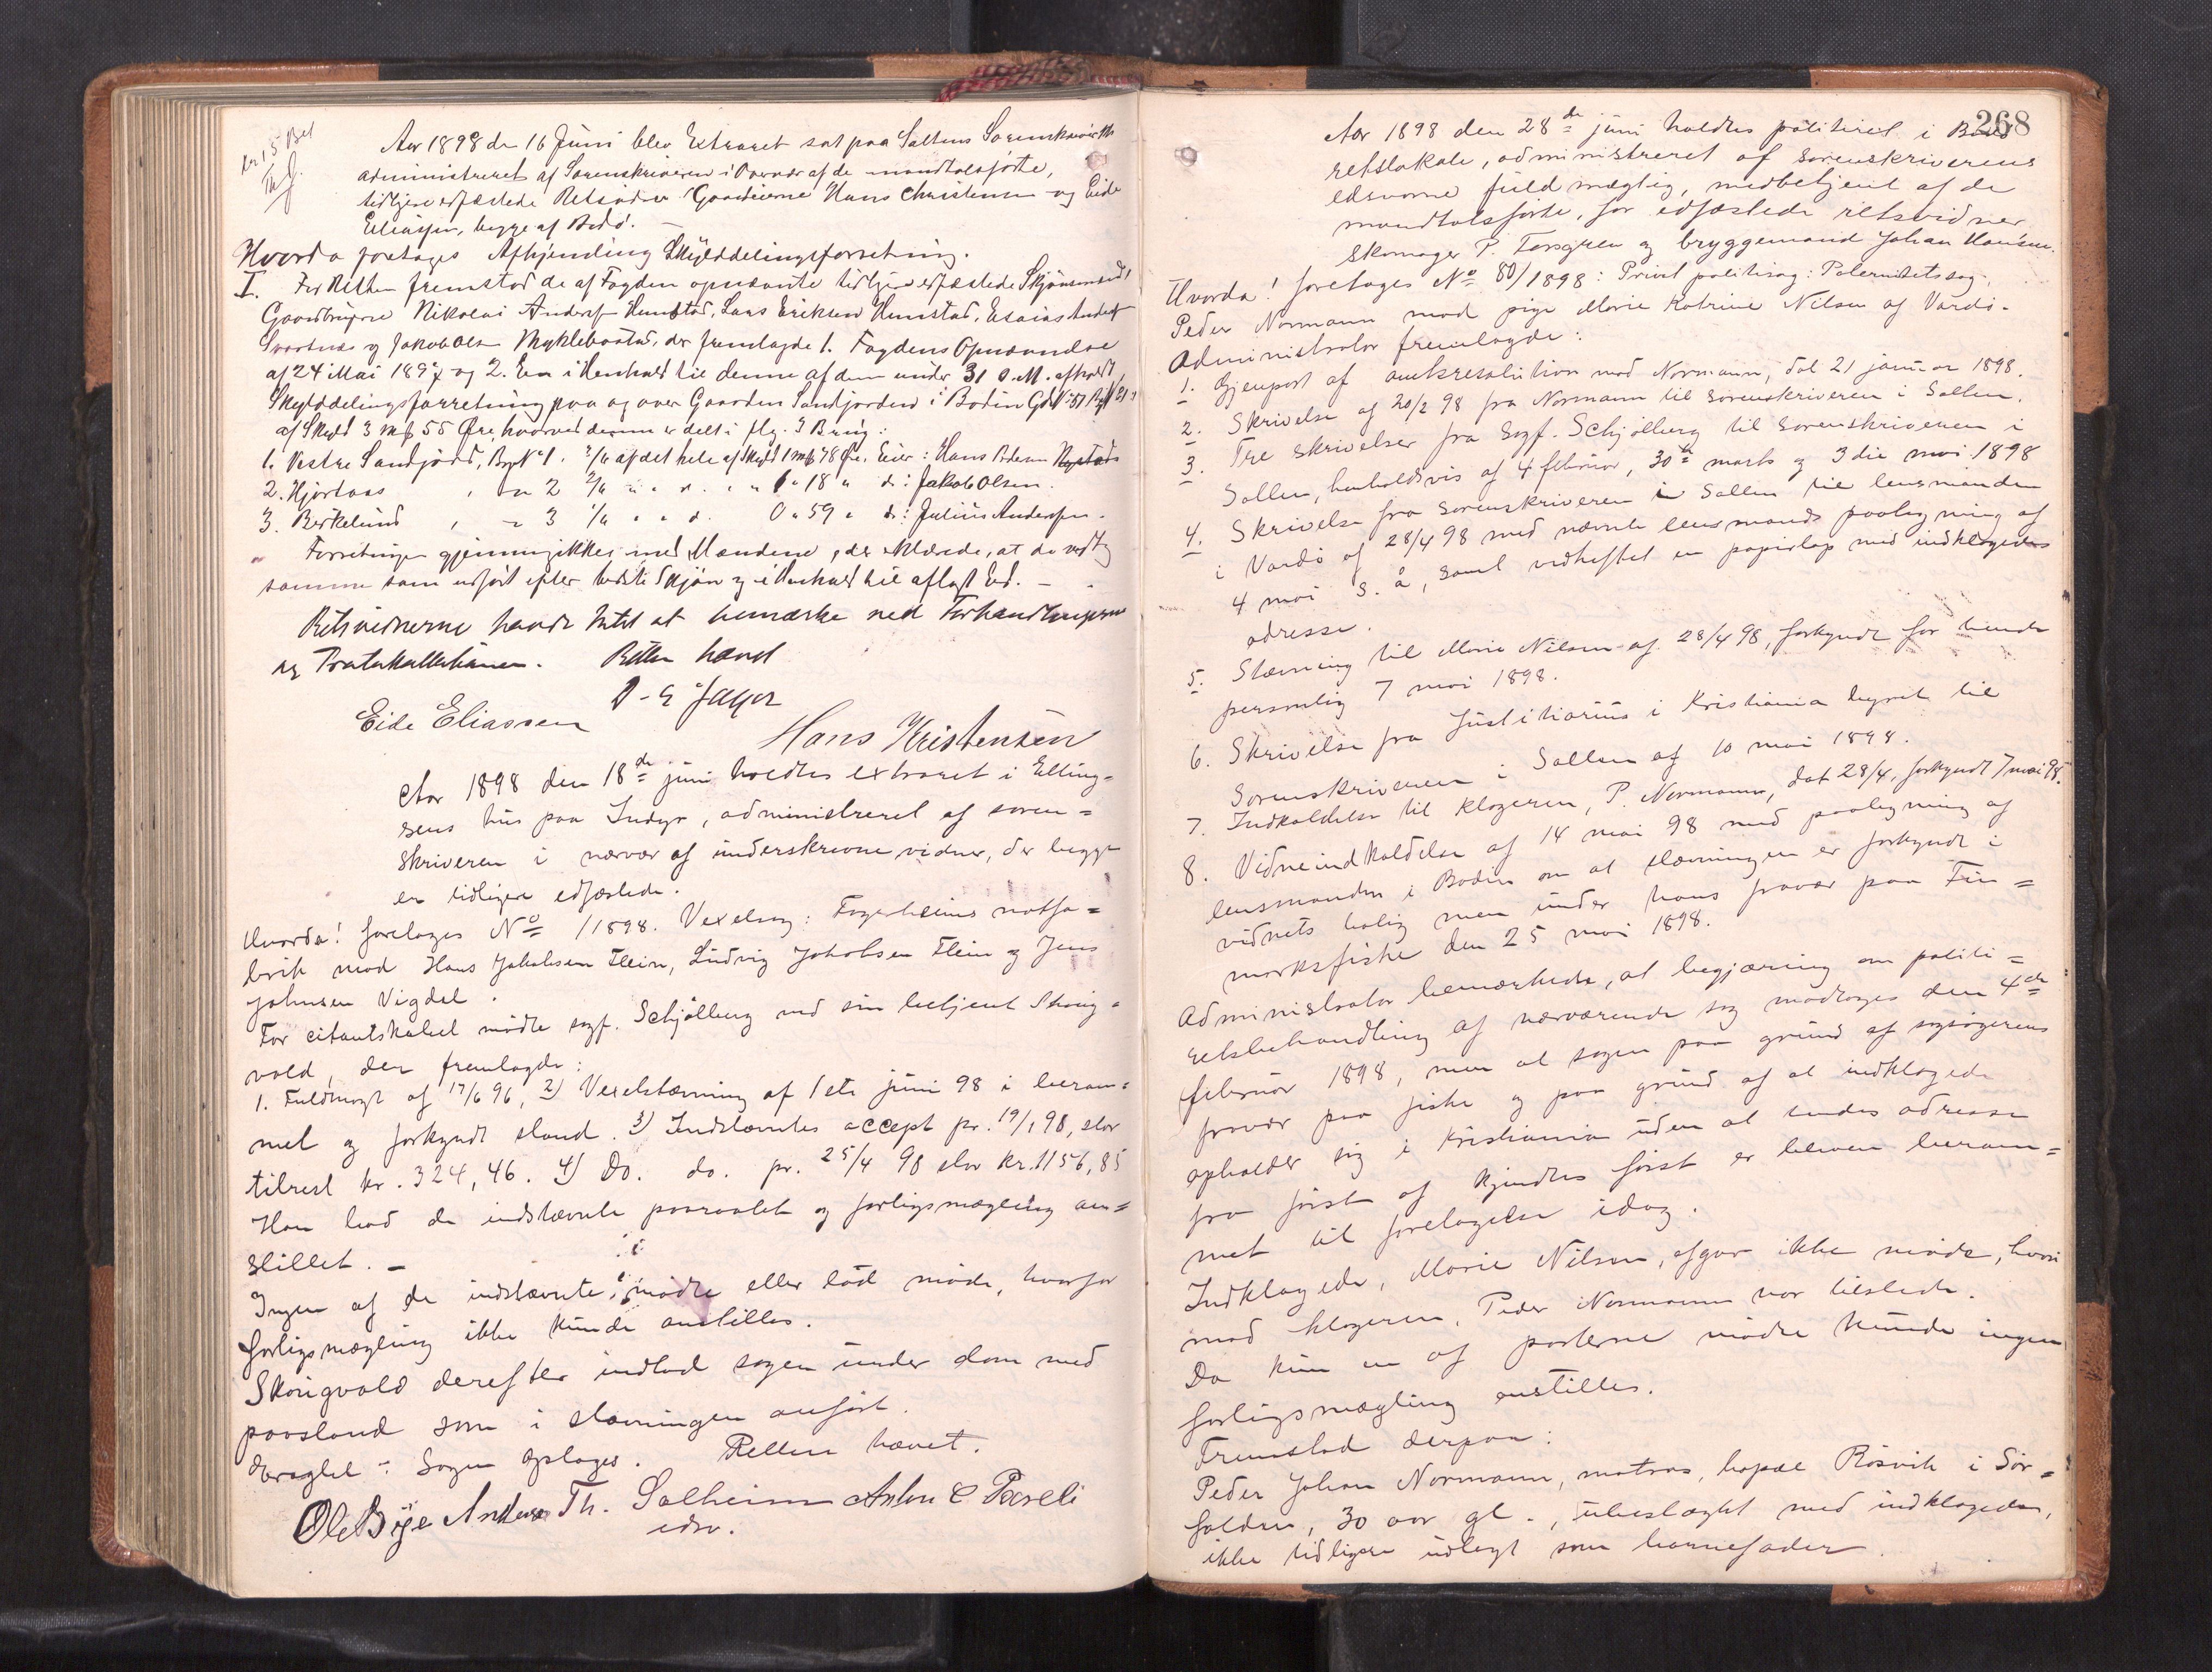 kr 1,5 Bet
Aar 1898 den 16 Juni blev Extraret sat paa Saltens Sorenskriveri
administreret af Sorenskriveren i Overvær af de mandtalsførte,
tidligere edfæstede Retsvidner Gaardeierne Hans Christensen og Eide
Eliassen, begge af Bodø. –
Hvorda foretages Afhjemling Skylddelingsforretning.
I. For Retten fremstod de af Fogden opnævnte tidligere edfæstede Skjønsmænd,
Gaardbrugerne Nikolai Anders. Hunstad, Lars Eriksen Hunstad, Esaias Anders.
Svartnæs og Jakob Olsen Myklebostad, der fremlagde 1. Fogdens Opnævnelse
af 24 Mai 1897 og 2. En i Henhold til denne af dem under 31 s. M. afholdt
Skylddelingsforretning paa og over Gaarden Sandjorden i Bodin
af Skyld 3 mk 55 Øre, hvorved denne er delt i flg. 3 Brug:
1. Vestre Sandjord, Br. No 1. 3/6 af det hele af Skyld 1 mk 78 Øre. Eier: Hans Pedersen
2. Hjortaas " " 2 2/6 " " " " 1 " 18 " do: Jakob Olsen.
3. Birkelund " " 3 1/6 " " d. 0 " 59 " do: Julius Andersen.
Forretningen gjennemgikkes med Mændene, der erklærede, at de vedtog
samme som udført efter bedste Skjøn og i Henhold til aflagt Ed. –
Retsvidnerne havde Intet at bemærke ved Forhandlingerne
og Protokollationen. Retten hævet
Eide Eliassen
Hans Kristensen
Aar 1898 den 18de juni holdtes extraret i Elling=
sens hus paa Indyr, administreret af soren=
skriveren i nærvær af underskrevne vidner, der begge
er tidligere edfæstede.
Hvorda! foretages No /1898. Vexelsag: Fagerheims notfa=
brik mod Hans Jakobsen Flein, Ludvig Jakobsen Flein og Jens
Johnsen Vigdel.
For citantskabet mødte sagf. Schjølberg ved sin betjent Skong=
vold, der fremlagde:
1. Fuldmagt af 17/6 96, 2) Vexelstævning af 1ste juni 98 i beram=
met og forkyndt stand. 3) Indstævntes accept pr. 19/1 98, stor
tilrest kr. 324,46. 4) Do. do. pr. 25/4 98 stor kr. 1156,85
Han bad de indstævnte paaraabt og forligsmægling an=
stillet. –
Ingen af de indstævnte mødte eller lod møde, hvorfor
forligsmægling ikke kunde anstilles.
Skongvold derefter indlod sagen under dom med
paastand som i stævningen anført.
Eragtet: Sagen optages. Retten hævet.
Ole Bye Andersen Th. Solheim Anton C Pareli
edsv.
268
Aar 1898 den 28de juni holdtes politiret i Bodø
retslokale, administreret af sorenskriverens
edsvorne fuldmægtig, medbetjent af de
mandtalsførte, før edfæstede retsvidner
skomager P. Forsgren og bryggemand Johan Hansen.
Hvorda! foretages No 80/1898: Privat politisag: Paternitetssag.
Peder Normann mod pige Marie Katrine Nilsen af Vardø.
Administrator fremlagde:
1. Gjenpart af amtsresolution mod Normann, dat 21 januar 1898.
2. Skrivelse af 20/2 98 fra Normann til sorenskriveren i Salten.
3. Tre skrivelser fra sagf. Schjølberg til sorenskriveren i
Salten, henholdsvis af 4 februar, 30te marts og 3die mai 1898
4. Skrivelse fra sorenskriveren i Salten til lensmanden
i Vardø af 28/4 98 med nævnte lensmands paategning af
4 mai s. å, samt vedheftet en papirlap med indklagedes
adresse.
5. Stævning til Marie Nilsen af 28/4 98, forkyndt for hende
personlig 7 mai 1898.
6. Skrivelse fra Justitiarius i Kristiania byret til
Sorenskriveren i Salten af 10 mai 1898.
7. Indkaldelse til klageren, P. Normann, dat 28/4, forkyndt 7 mai 98.
8. Vidneindkaldelse af 14 mai 98 med paategning af
lensmanden i Bodin om at stævningen er forkyndt i
vidnets bolig men under hans fravær paa Fin=
marksfiske den 25 mai 1898.
Administrator bemærkede, at begjæring om politi=
retsbehandling af nærværende sag modtoges den 4de
februar 1898, men at sagen paa grund af sagsøgerens
fravær paa fiske og paa grund af at indklagede
opholder sig i Kristiania uden at hendes adresse
fra først af kjendtes først er bleven beram=
met til foretagelse idag.
Indklagede, Marie Nilsen, afgav ikke møde, hvori
mod klageren, Peder Normann var tilstede.
Da kun en af parterne mødte kunde ingen
forligsmægling anstilles.
Fremstod derpaa:
Peder Johan Normann, matros, bopæl Røsvik i Sør=
folden, 30 aar gl., ubeslægtet med indklagede,
ikke tidligere udlagt som barnefader.